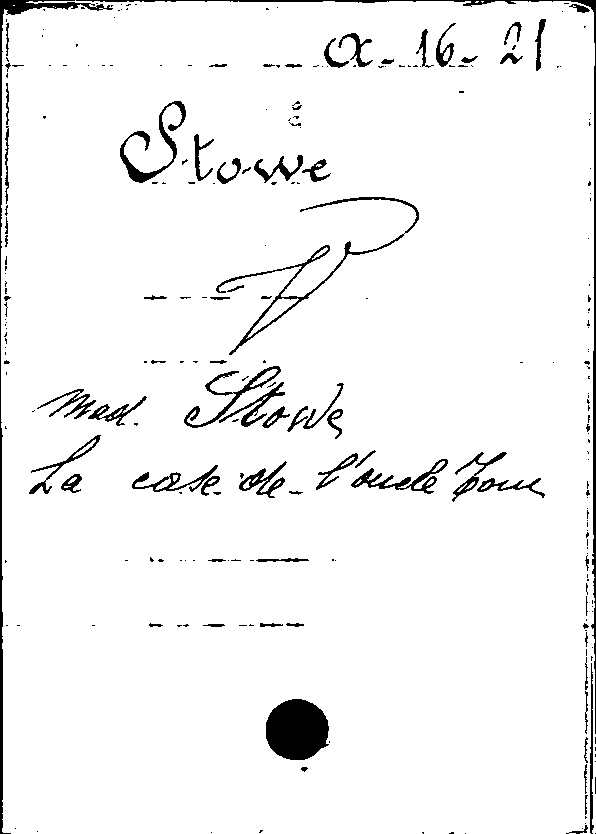 α-16-21
Stowe
V
Mad. Stowe
La case de l'oncle Tom